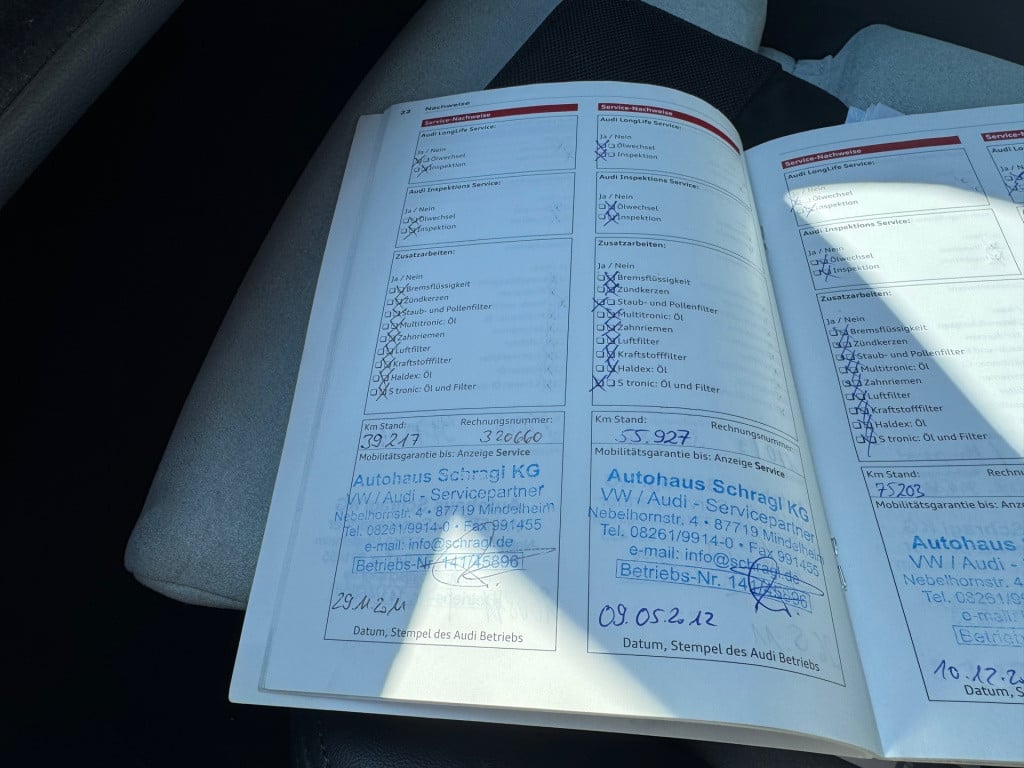 22 Nachweise
Service-Nachweise
Audi LongLife Service:
Ja / Nein
Ölwechsel
Inspektion
Audi Inspektions Service:
Ja / Nein
Ölwechsel
Inspektion
Zusatzarbeiten:
Ja / Nein
Bremsflüssigkeit
Zündkerzen
Staub- und Pollenfilter
Multitronic: Öl
Zahnriemen
Luftfilter
Kraftstofffilter
Haldex: Öl
S tronic: Öl und Filter
Km Stand: Rechnungsnummer:
39.217 320660
Mobilitätsgarantie bis: Anzeige Service
Autohaus Schragl KG
VW / Audi - Servicepartner
Nebelhornstr. 4 • 87719 Mindelheim
Tel. 08261/9914-0 • Fax 991455
e-mail: info@schragl.de
Betriebs-Nr. 141/45896
29.11.2011
Datum, Stempel des Audi Betriebs
Service-Nachweise
Audi LongLife Service:
Ja / Nein
Ölwechsel
Inspektion
Audi Inspektions Service:
Ja / Nein
Ölwechsel
Inspektion
Zusatzarbeiten:
Ja / Nein
Bremsflüssigkeit
Zündkerzen
Staub- und Pollenfilter
Multitronic: Öl
Zahnriemen
Luftfilter
Kraftstofffilter
Haldex: Öl
S tronic: Öl und Filter
Km Stand: Rechnungsnummer:
55.927
Mobilitätsgarantie bis: Anzeige Service
Autohaus Schragl KG
VW / Audi - Servicepartner
Nebelhornstr. 4 • 87719 Mindelheim
Tel. 08261/9914-0 • Fax 991455
e-mail: info@schragl.de
Betriebs-Nr. 141/45896
09.05.2012
Datum, Stempel des Audi Betriebs
Service-Nachweise
Audi LongLife Service:
Ja / Nein
Ölwechsel
Inspektion
Audi Inspektions Service:
Ja / Nein
Ölwechsel
Inspektion
Zusatzarbeiten:
Ja / Nein
Bremsflüssigkeit
Zündkerzen
Staub- und Pollenfilter
Multitronic: Öl
Zahnriemen
Luftfilter
Kraftstofffilter
Haldex: Öl
S tronic: Öl und Filter
Km Stand: Rechn
75203
Mobilitätsgarantie bis: Anz
Autohaus
VW / Audi -
Nebelhornstr. 4
Tel. 08261/99
e-mail:
Betrieb
10.12.2
Datum, S
Service-N
Audi Lo
Ja /